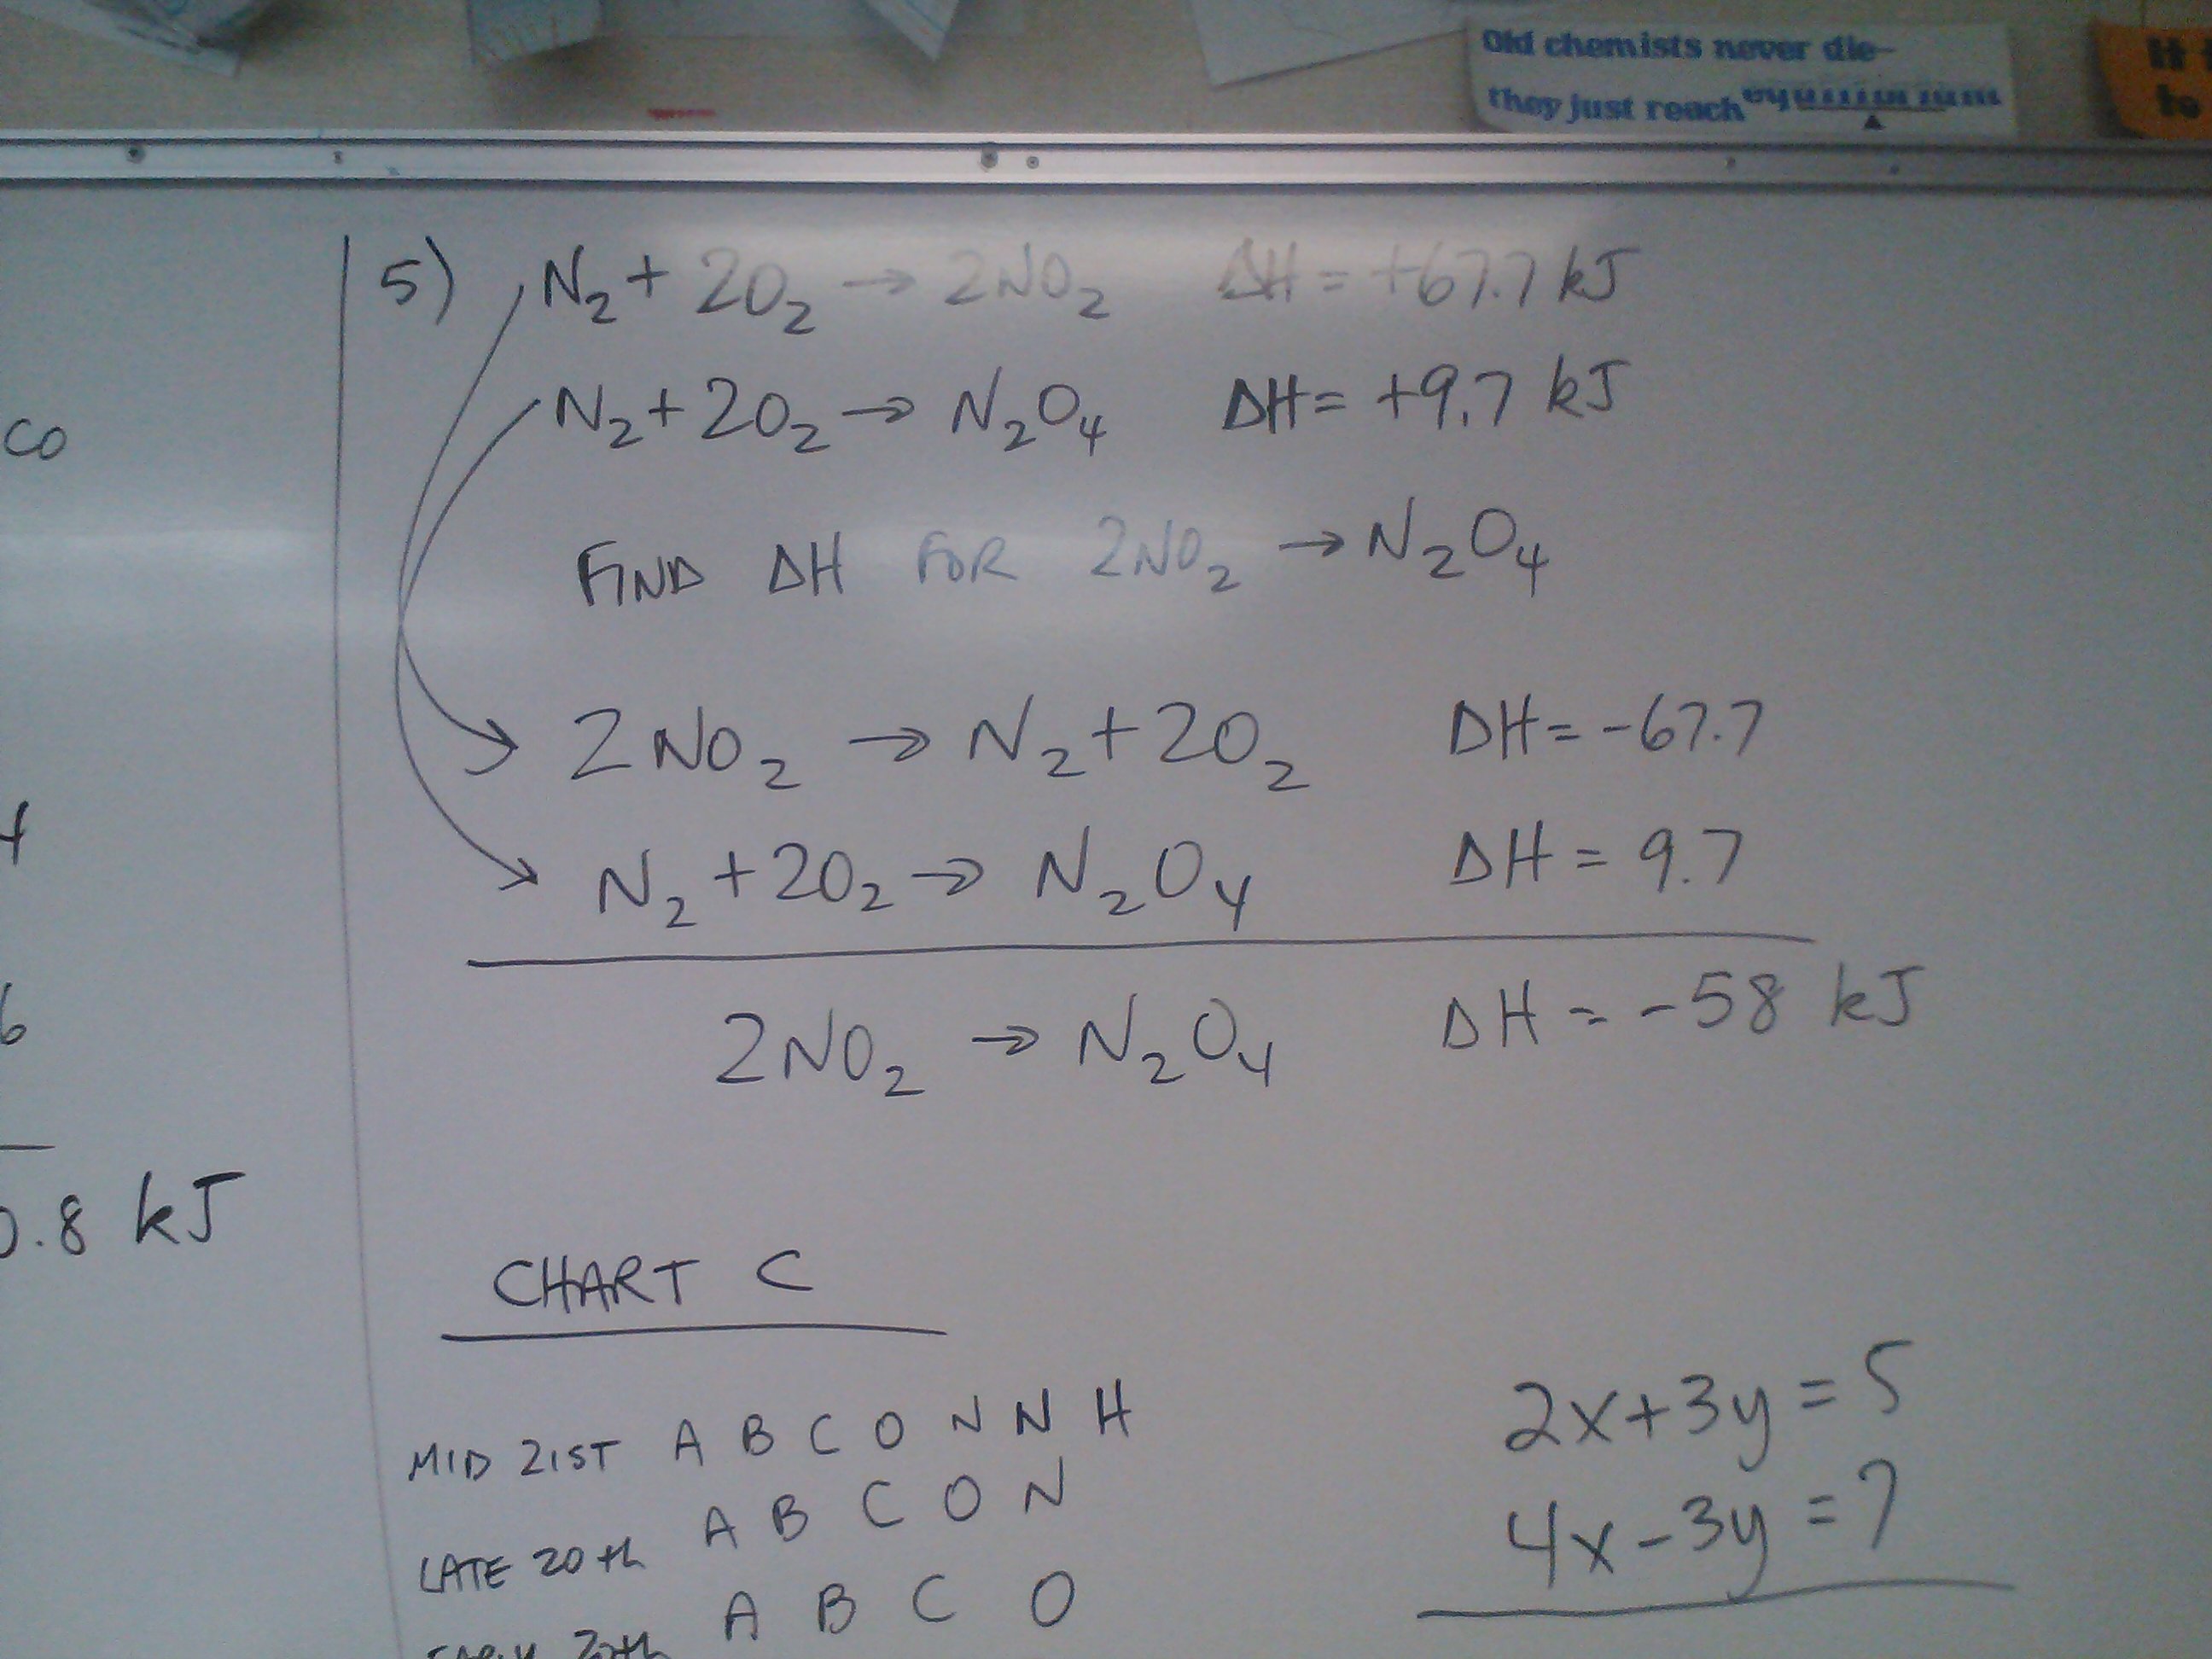 Old chemists never die—
they just reach
5) N₂ + 2O₂ → 2NO₂ ΔH = +67.7 kJ
N₂ + 2O₂ → N₂O₄ ΔH = +9.7 kJ
CO
FIND ΔH FOR 2NO₂ → N₂O₄
2NO₂ → N₂ + 2O₂ ΔH = -67.7
N₂ + 2O₂ → N₂O₄ ΔH = 9.7
2NO₂ → N₂O₄ ΔH = -58 kJ
.8 kJ
CHART C
MID 21ST A B C O N N H
LATE 20th A B C O N
20th A B C O
2x+3y=5
4x-3y=7